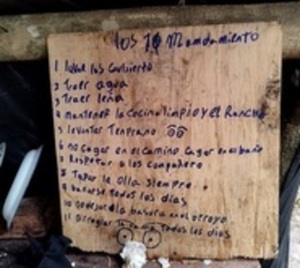 los 10 Mandamiento
1 lavar los cubierto
2 Traer agua
3 Traer leña
4 mantener la cocina limpio y el Rancho
5 levantar Temprano
6 no cagar en el camino cagar en el baño
7 Respetar a los compañero
8 Tapar la olla siempre
9 bañarse todos los dias
10 no dejar la basura en el arroyo
11 Arreglar todos los dias